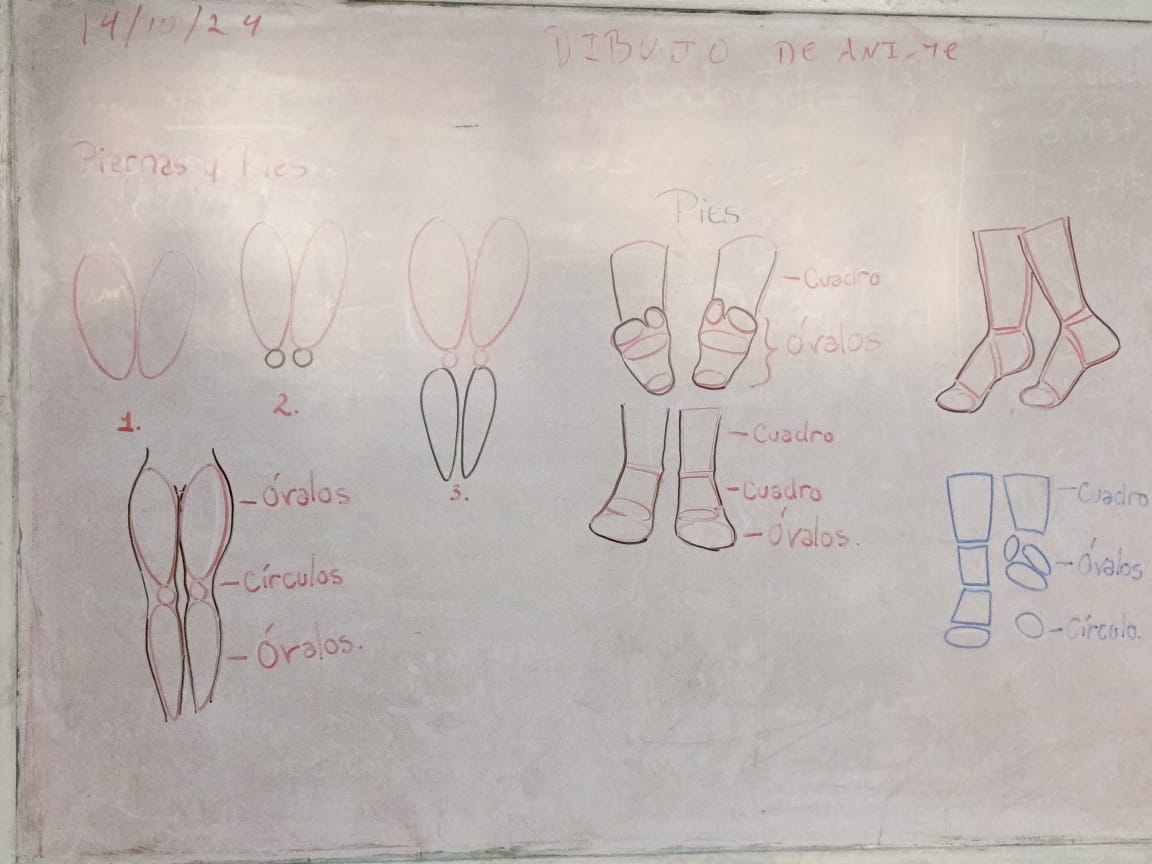 14/10/24
DIBUJO DE ANIME
Piernas y Pies
Pies
1.
2.
3.
- Óvalos
- Círculos
- Óvalos.
- Cuadro
} Óvalos
- Cuadro
- Cuadro
- Óvalos.
- Cuadro
- Óvalos
- Círculo.